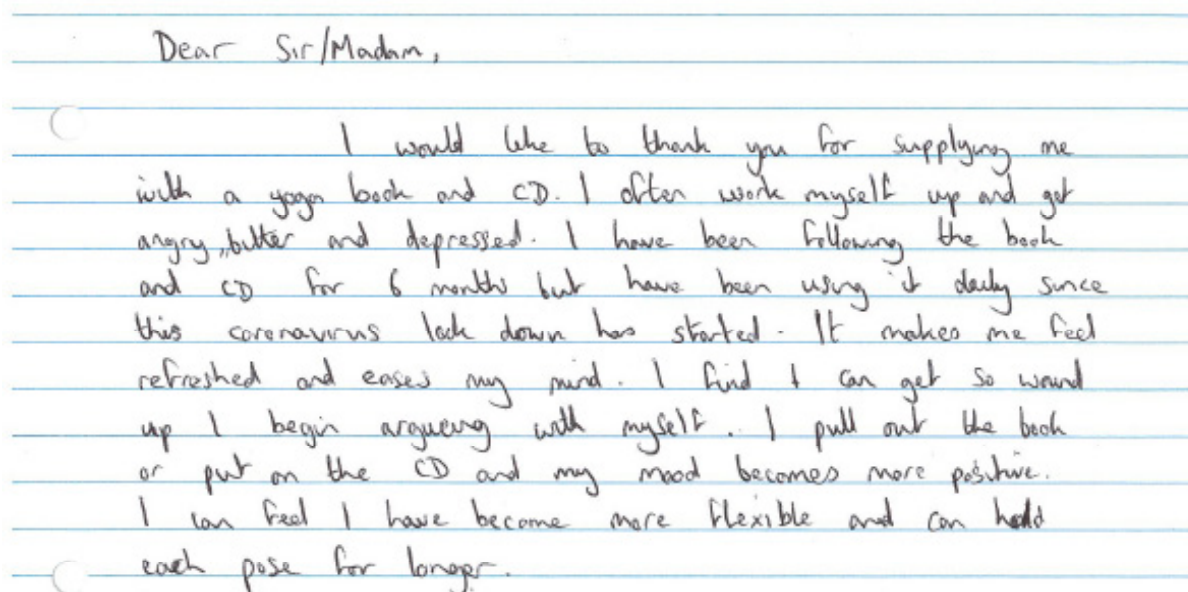 Dear Sir/Madam,
I would like to thank you for supplying me
with a yoga book and CD. I often work myself up and get
angry, bitter and depressed. I have been following the book
and CD for 6 months but have been using it daily since
this coronavirus lock down has started. It makes me feel
refreshed and eases my mind. I find I can get so wound
up I begin argueing with myself. I pull out the book
or put on the CD and my mood becomes more positive.
I can feel I have become more flexible and can hold
each pose for longer.